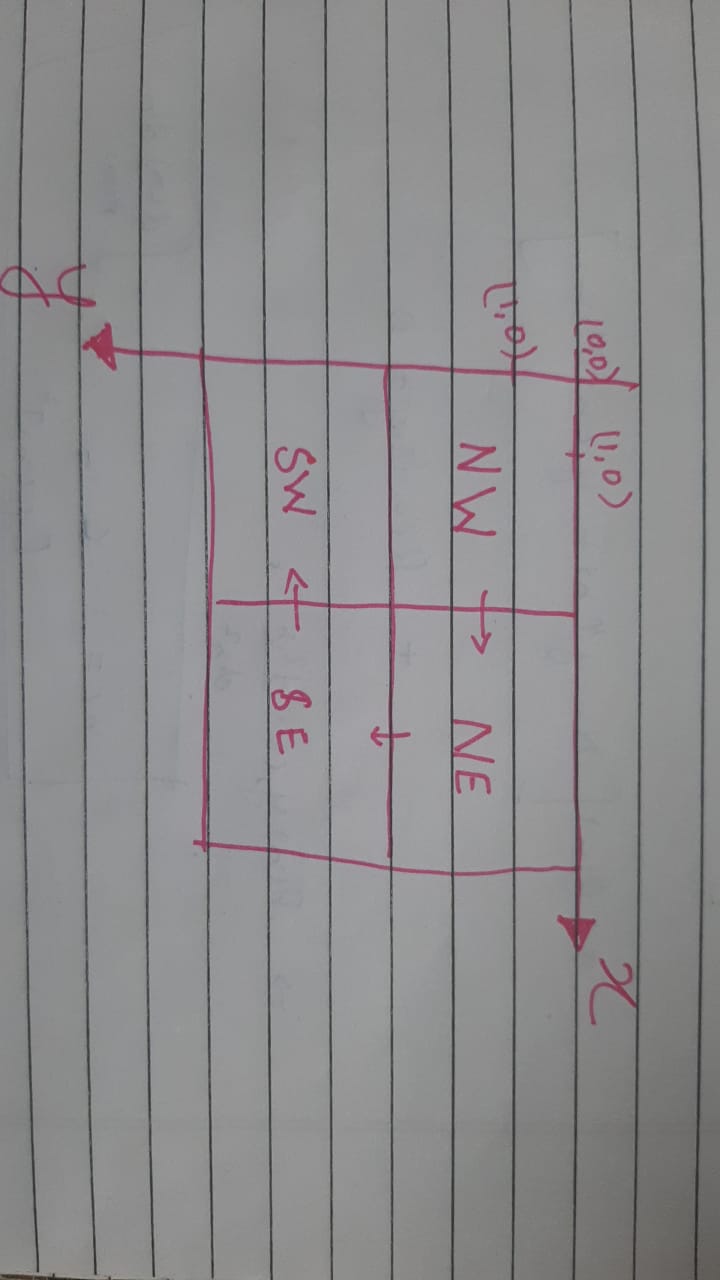 (0,0) (1,0) x
(1,0)
NW NE
SW SE
y